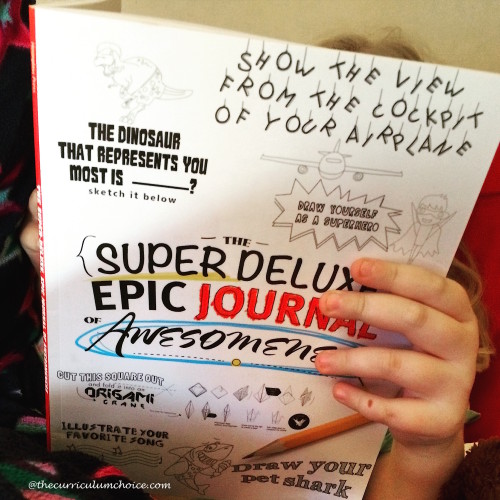 THE DINOSAUR
THAT REPRESENTS YOU
MOST IS ________?
sketch it below
SHOW THE VIEW
FROM THE COCKPIT
OF YOUR AIRPLANE
DRAW YOURSELF
AS A SUPERHERO
THE
{SUPER DELUX
EPIC JOURNAL
OF AWESOMENE
CUT THIS SQUARE OUT
and fold it into an
ORIGAMI
CRANE
ILLUSTRATE YOUR
FAVORITE SONG
Draw your
pet shark
@thecurriculumchoice.com